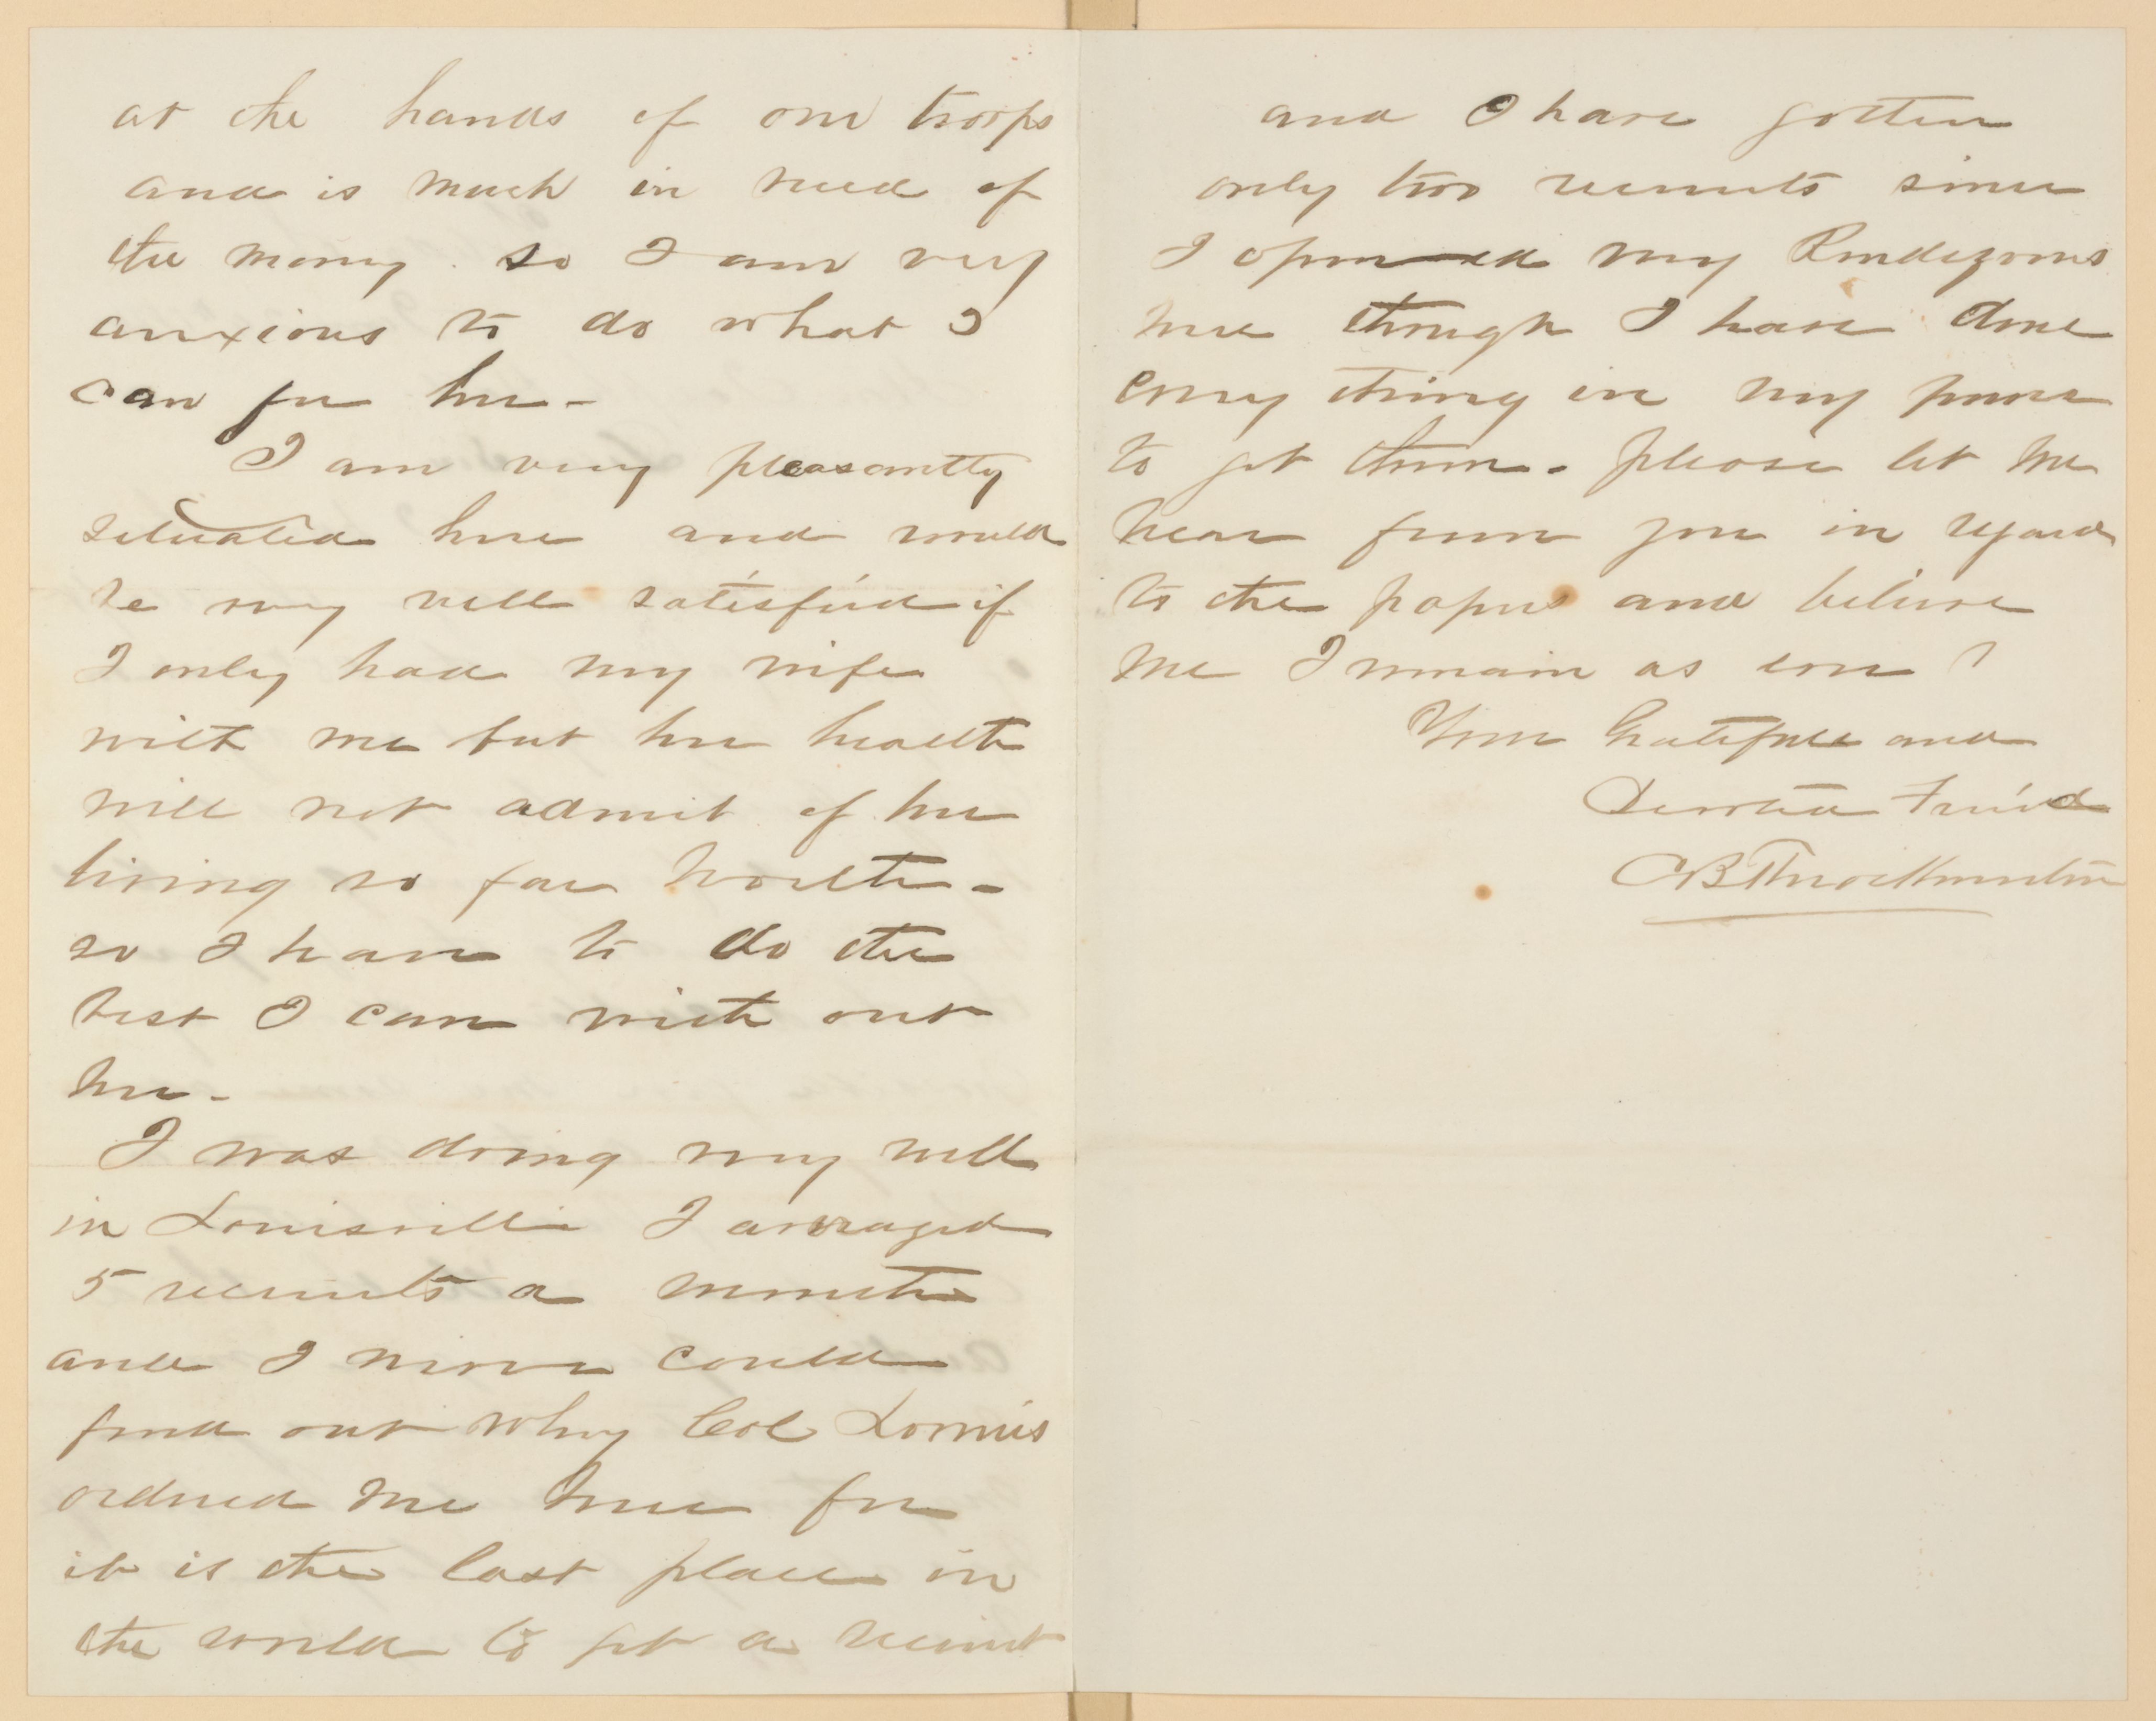 at the hands of our troops
and is much in need of
the money. so I am very
anxious to do what I
can for her-
I am very pleasantly
situated here and would
be very well satisfied if
I only had my wife
with me but her health
will not admit of her
living so far North-
so I have to do the
best I can with out
her-
I was doing very well
in Louisville I averaged
5 recruits a month
and I never could
find out why Col Lomis
ordered me here for
it is the last place in
the world to get a recruit
and I have gotten
only two recruits since
I opened my Rendezvous
here though I have done
every thing in my power
to get them- please let me
hear from you in regard
to the papers and believe
me I remain as ever
Your Grateful and
Devoted Friend
CB Throckmorton